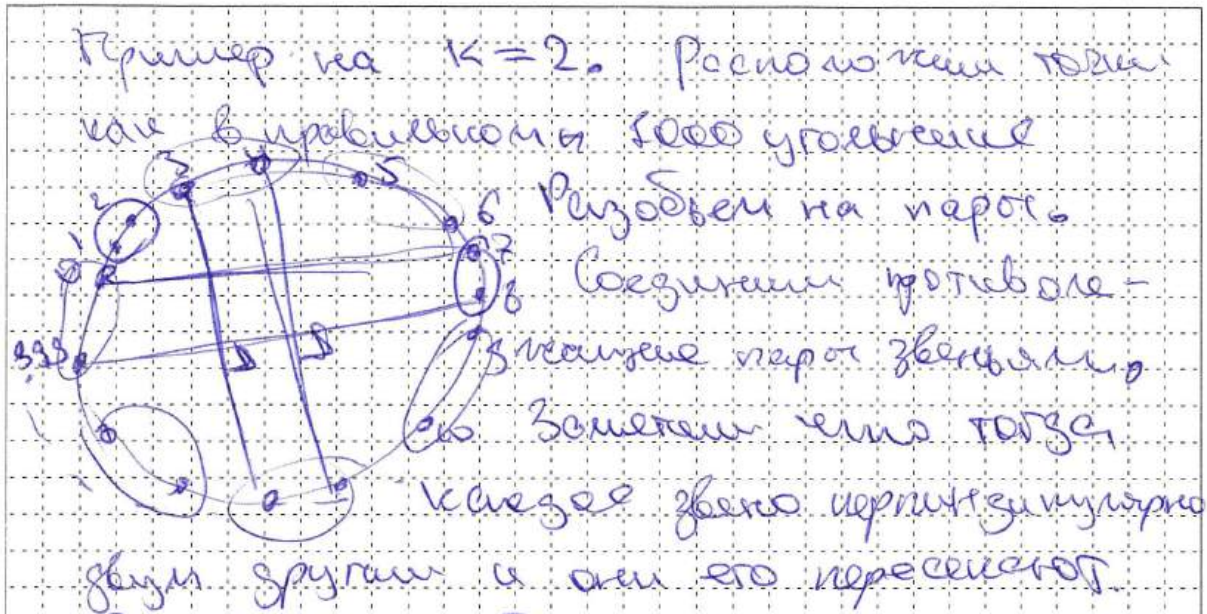 Пример на K=2. Расположим точки
как в правильном 1000 угольнике
1 2 3 4 5 6 7 8 9 10 999
Разобьем на пары.
Соединим противоле-
жащие пары звеньями.
Заметим что тогда
каждое звено перпиндикулярно
двум другим и они его пересекают.